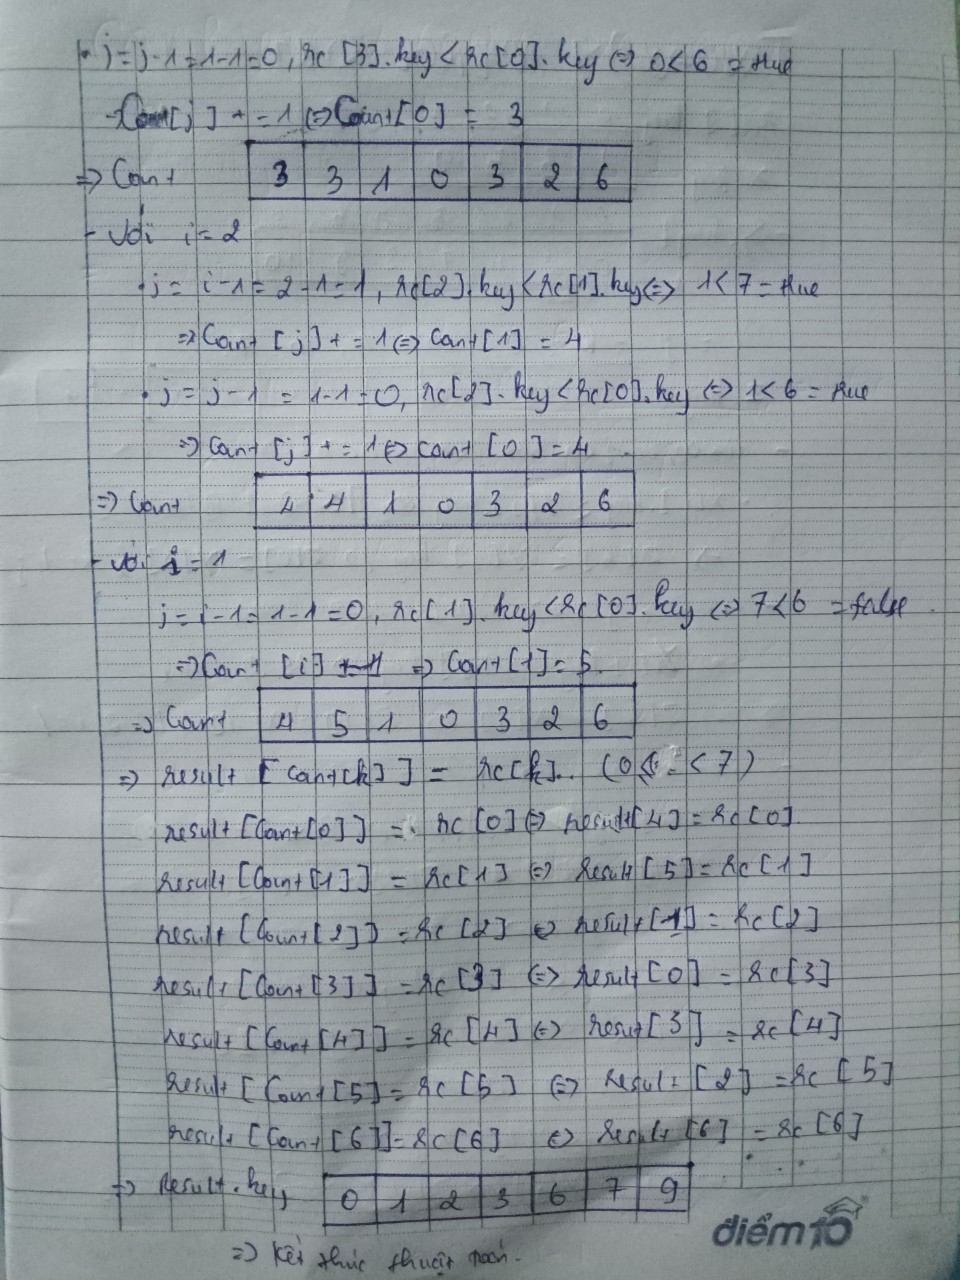 • j = j-1 = 1-1 = 0, rc[3].key < rc[0].key ⇔ 0 < 6 = true
→ Count[j] += 1 ⇔ Count[0] = 3
⇒ Count 3 3 1 0 3 2 6
- Với i = 2
• j = i-1 = 2-1 = 1, rc[2].key < rc[1].key ⇔ 1 < 7 = true
⇒ Count [j] += 1 ⇔ Count[1] = 4
• j = j-1 = 1-1 = 0, rc[2].key < rc[0].key ⇔ 1 < 6 = true
⇒ Count [j] += 1 ⇔ count [0] = 4
⇒ Count 4 4 1 0 3 2 6
- Với i = 1
j = i-1 = 1-1 = 0, rc[1].key < rc[0].key ⇔ 7 < 6 = false
⇒ Count [i] += 1 ⇒ Count[1] = 5
⇒ Count 4 5 1 0 3 2 6
⇒ result [Count[k]] = rc[k] (0 ≤ < 7)
result [Count[0]] = rc[0] ⇔ result[4] = rc[0]
result [Count[1]] = rc[1] ⇔ result [5] = rc[1]
result [Count[2]] = rc[2] ⇔ result [1] = rc[2]
result [Count[3]] = rc[3] ⇔ result [0] = rc[3]
result [Count[4]] = rc[4] ⇔ result [3] = rc[4]
result [Count[5] = rc[5] ⇔ result [2] = rc[5]
result [Count[6]] = rc[6] ⇔ result [6] = rc[6]
⇒ result.key 0 1 2 3 6 7 9
điểm10
⇒ Kết thúc thuật toán.